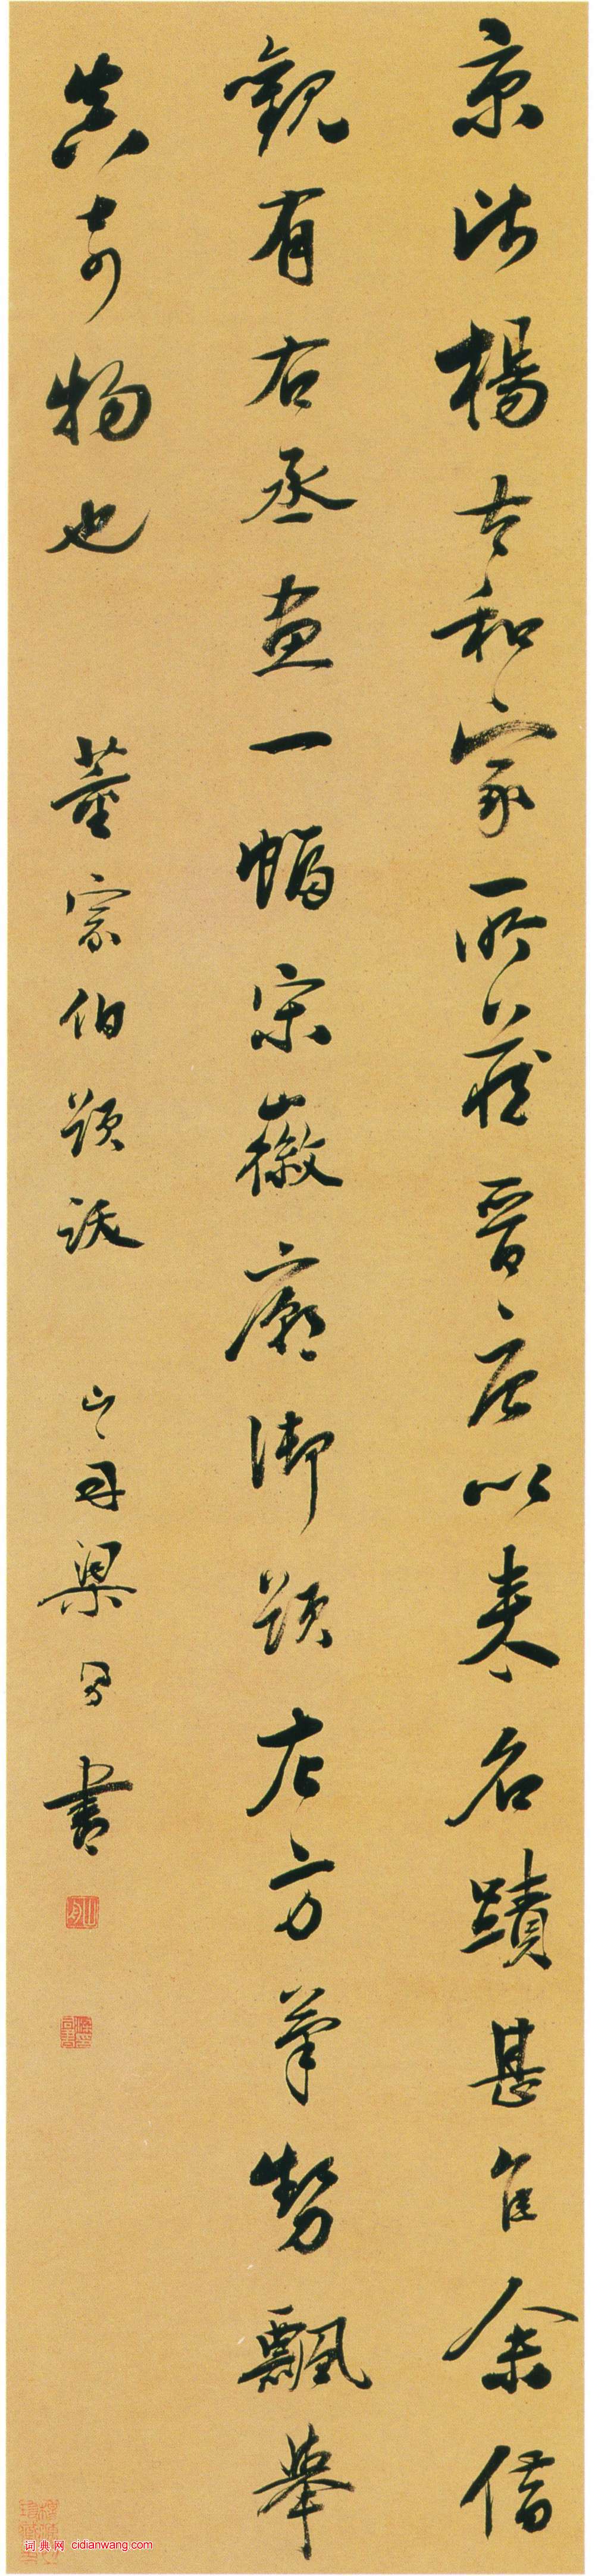 京口楊太和家所藏晉唐以來名蹟甚佳余借
觀有右丞畫一幅宋徽廟御題左方筆勢飄舉
真奇物也 董宗伯題跋 山舟梁同書
词典网 cidianwang.com